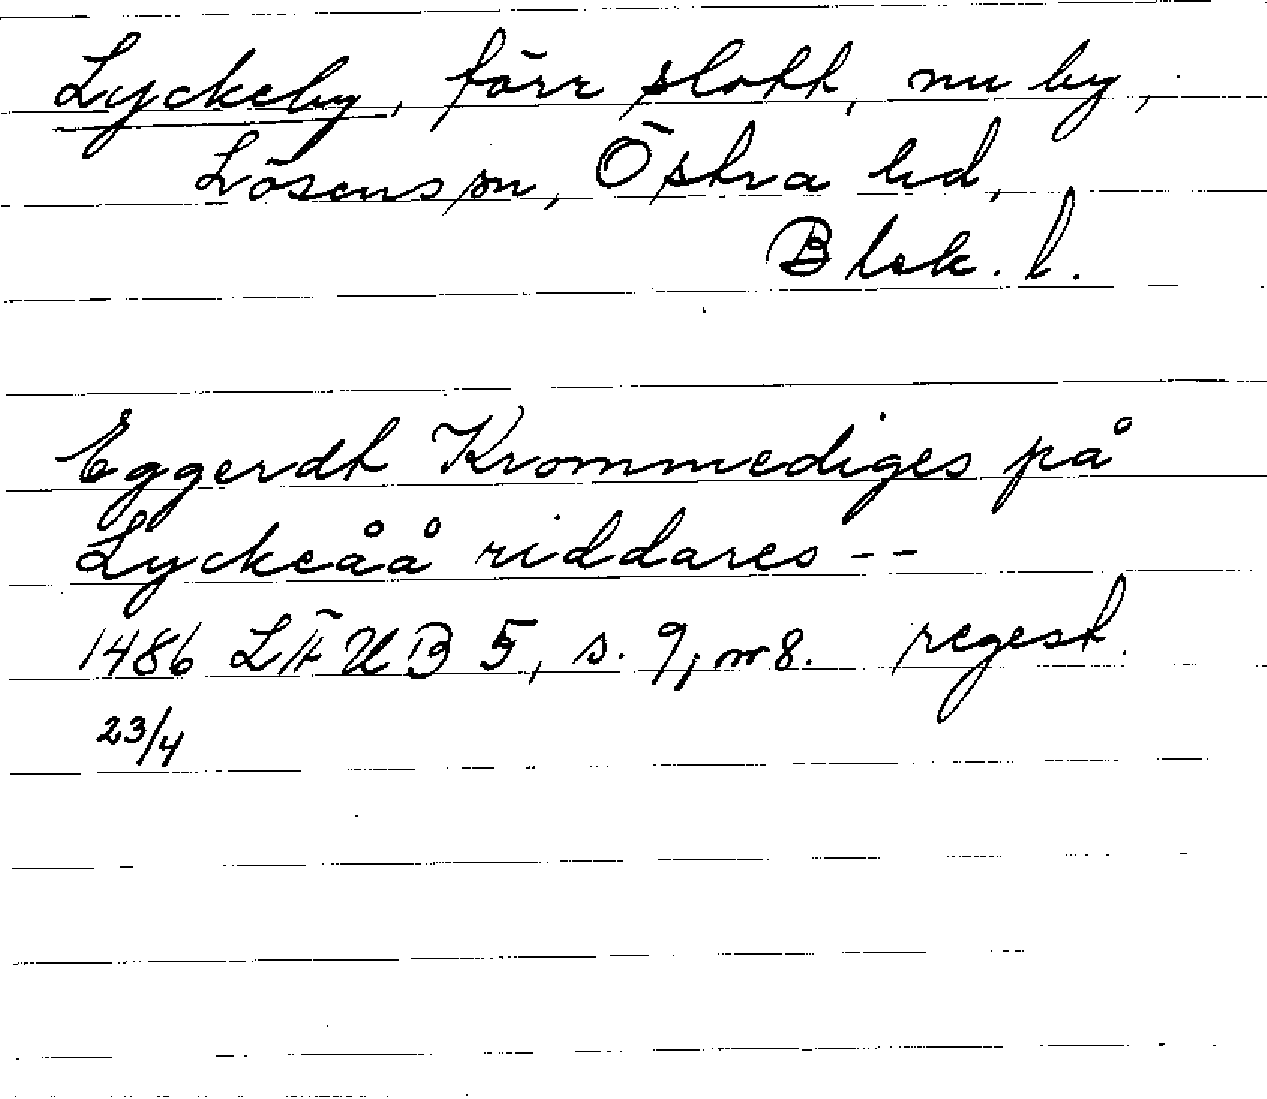 Lyckeby, förr slott, nu by,
Lösens sn, Östra hd,
Blek. l.
Eggerdt Krommediges på
Lyckeåå riddares --
1486 LÄUB 5, s. 9, nr 8. regest.
23/4